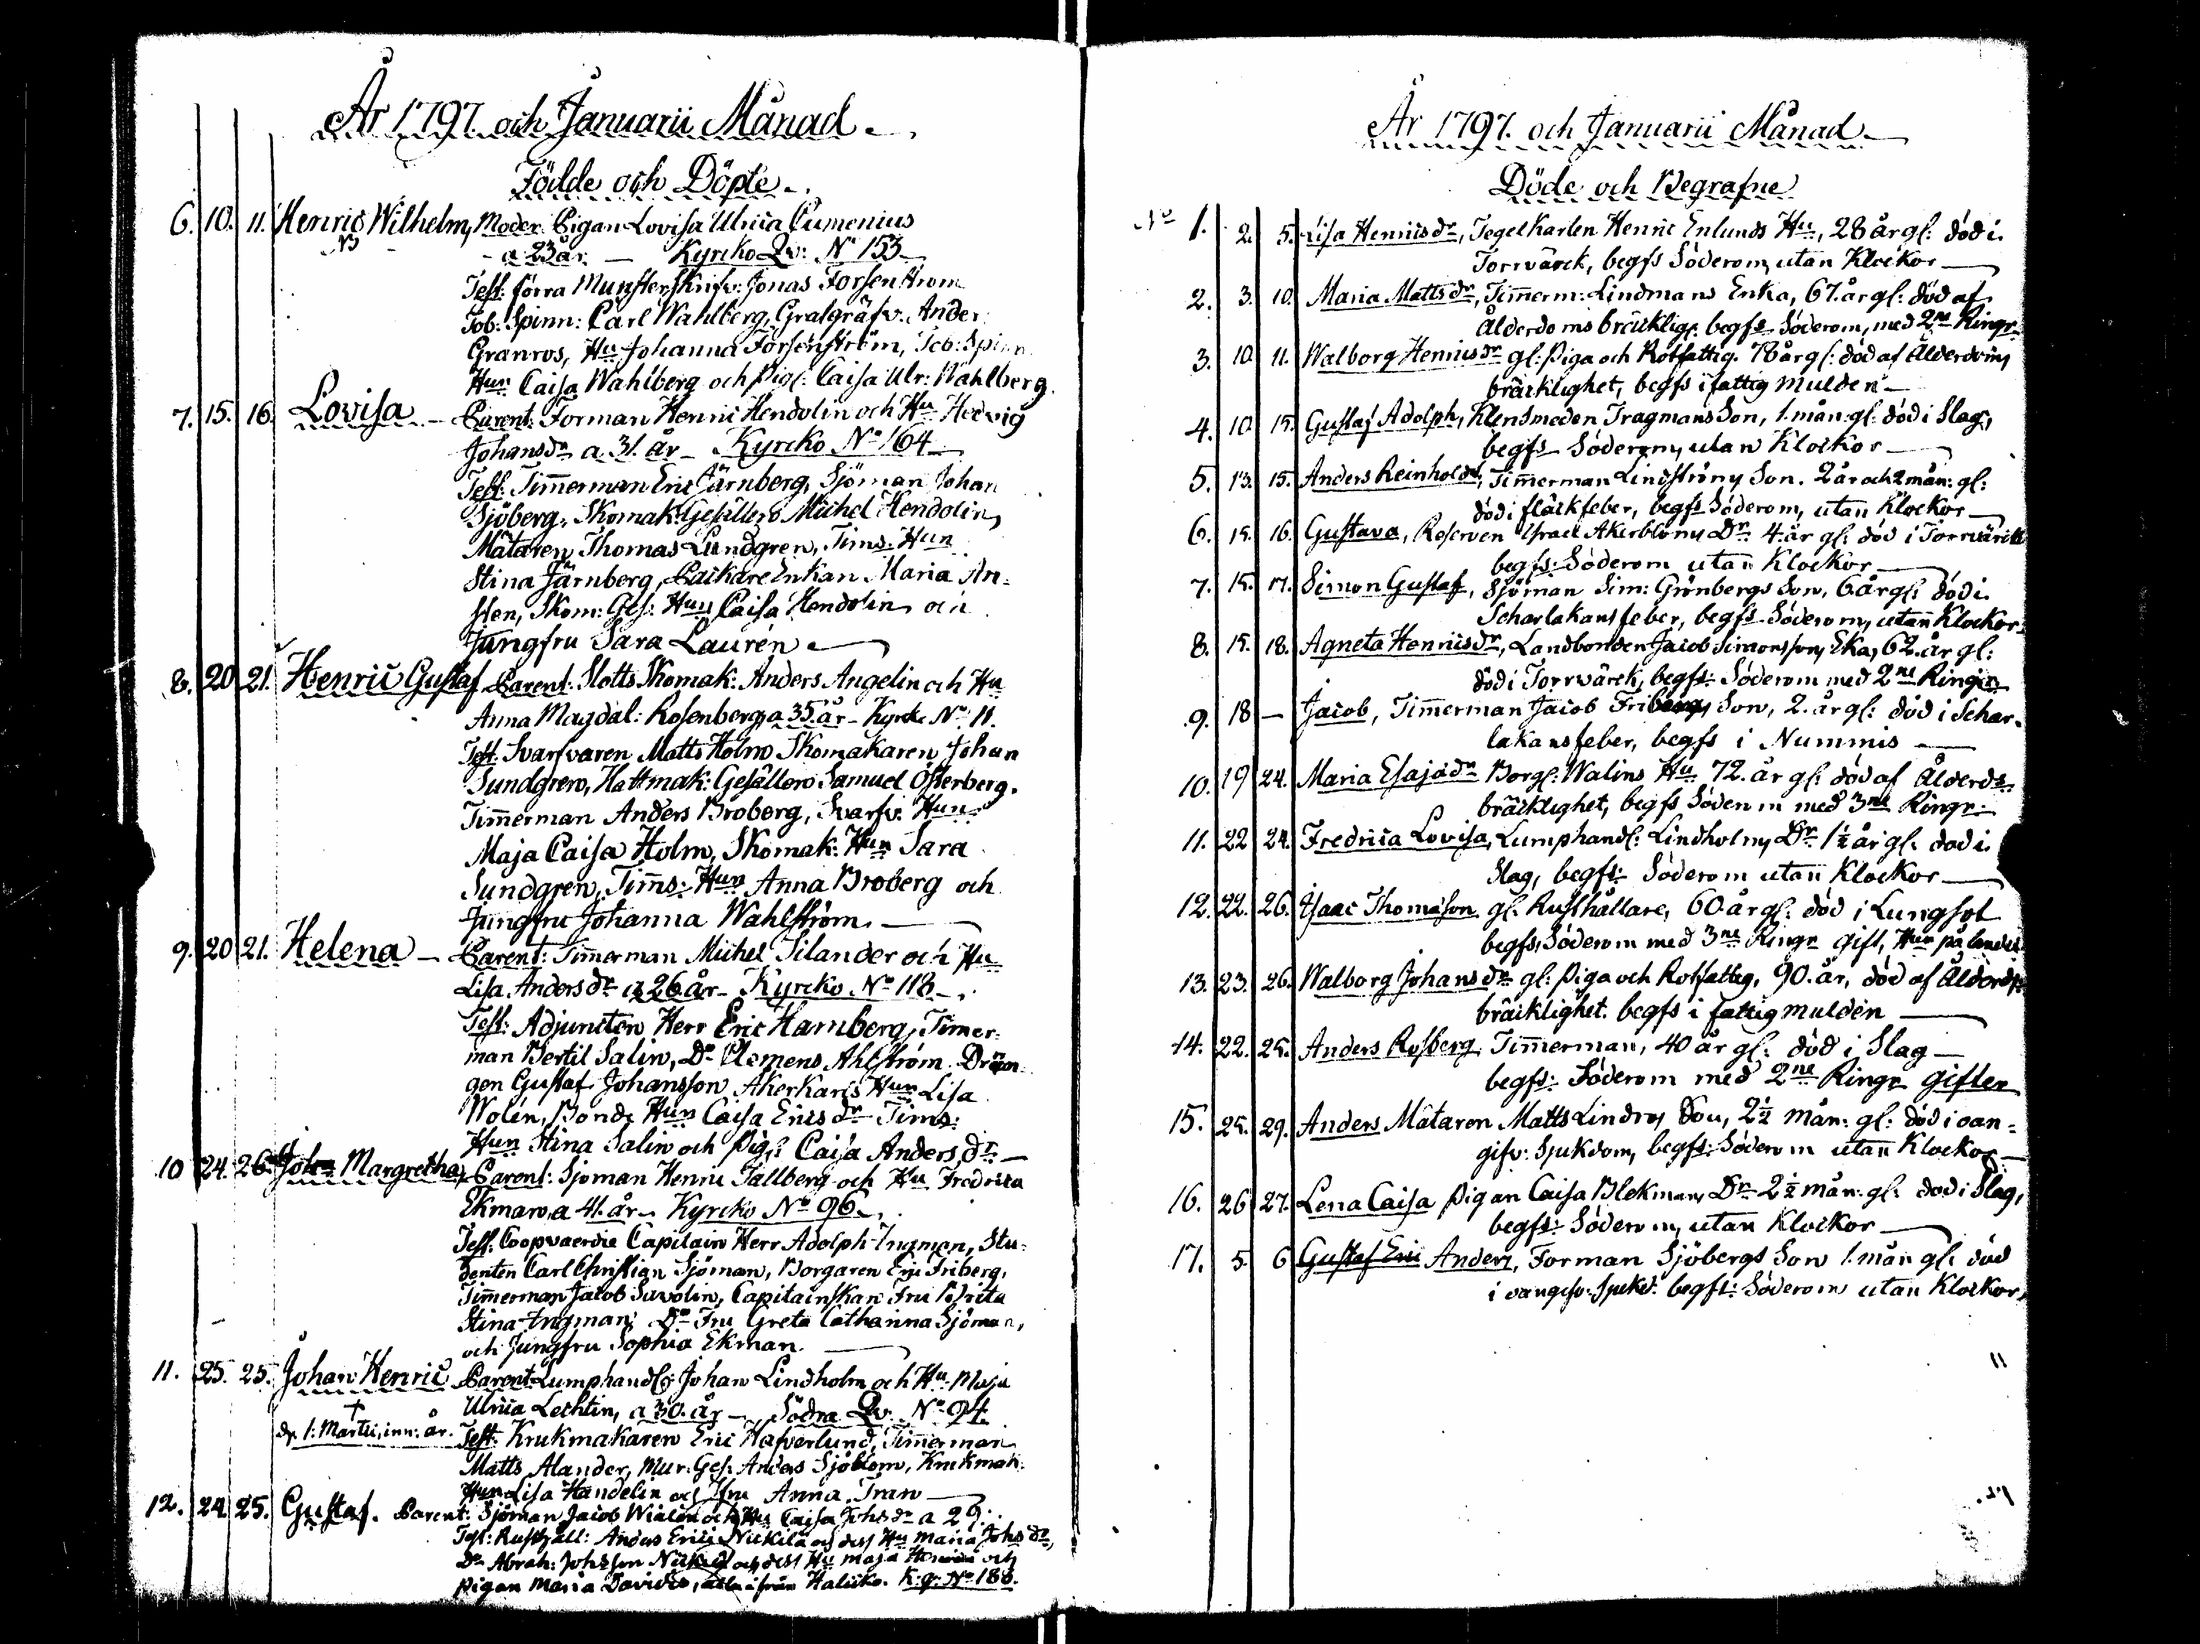 År 1797. och Januarii Månad.
Födde och Döpte.
6. 10. 11. Henric Wilhelm, Moder Pigan Lovisa Ulrica Cumenius
a 23 år — Kyrcko Qv: No 153
Test: förra Munsterskrifv: Jonas Forsenström
Tob: Spinn: Carl Wahlberg, Ander
Granros, Hu Johanna Forsenström, Tob: Spinn
Hun Caisa Wahlberg och Pig: Caisa Ulr: Wahlberg.
7. 15. 16. Lovisa — Parent: Forman Henric Hendolin och Hu Hedvig
Johansdr a 31. år — Kyrcko No 164
Test: Timmerman Eric Järnberg, Sjöman Johan
Sjöberg, Skomak: Gesällen Michel Hendolin,
Mätaren Thomas Lundgren, Tims: Hun
Stina Järnberg, Packare Enkan Maria An-
sten, Skom: Ges: Hun Caisa Hendolin och
Jungfru Sara Laurén
8. 20 21. Henric Gustaf Parent: Slotts Skomak: Anders Angelin och Hu
Anna Magdal: Rosenberg, a 35 år — Kyrck. No 11.
Test: Svarfvaren Matts Holm Skomakaren Johan
Sundgren, Hattmak: Gesällen Samuel Österberg.
Timmerman Anders Broberg, Svarfv: Hun
Maja Caisa Holm, Skomak: Hun Sara
Sundgren, Tims: Hun Anna Broberg och
Jungfru Johanna Wahlström.
9. 20 21. Helena — Parent: Timmerman Michel Silander och Hu
Lisa Andersdr a 26 år — Kyrcko No 118
Test: Adjuncten Herr Eric Hamberg, Timer-
man Bertil Salin, Do Clemens Ahlström. Drän-
gen Gustaf Johansson Åkerkarls Hun Lisa
Wolén, Bonde Hun Caisa Ericsdr Tims:
Hun Stina Salin och Pig: Caisa Andersdr
10 24. 26. Margretha, Parent: Sjöman Henric Tallberg och Hu Fredrica
Ekman, a 41. år — Kyrcko No 96.
Test: Coopvaerdie Capitain Herr Adolph Ingman, Stu-
denten Carl Christian Sjöman, Borgaren Eric Friberg,
Timmerman Jacob Savolin, Capitainskan Fru Brita
Stina Ingman, Do Fru Greta Catharina Sjöman,
och Jungfru Sophia Ekman.
11. 25. 25. Johan Henric Parent: Lumphandl: Johan Lindholm och Hu: Maja
Ulrica Lechtin, a 30. år — Södra Qv. No 94.
† d. 1: Martii, inn: år. Test: Krukmakaren Eric Hafverlund, Timmerman
Matts Alander, Mur: Ges: Anders Sjöblom, Krukmak:
Hun Lisa Handelin och Jfru Anna Tran
12. 24 25. Gustaf. Parent: Sjöman Jacob Wialén och Hu Caisa Johsdr a 29.
Test: Rusthåll: Anders Erics Nickilä och dess Hu Maria Johsdr,
Do Abrah: Johsson och dess Hu Maja och
Pigan Maria Davidsdr, alla ifrån Halicko. K: q: No 188.
År 1797. och Januarii Månad
Döde och Begrafne
No 1. 2. 5. Lisa Henricsdr, Tegelkarlen Henric Enlunds Hu, 28 år gl: död i
Torrvärck, begfs Söderom, utan Klockor
2. 3. 10. Maria Mattsdr, Timmerm: Lindmans Enka, 67. år gl: död af
Ålderdoms bräcklig: begfs Söderom, med 2ne Ringr
3. 10. 11. Walborg Henricsdr gl: Piga och Rotfattig. 78 år gl: död af Ålderdoms
bräcklighet, begfs i fattig mulden
4. 10 15. Gustaf Adolph, Klensmeden Tragmans Son, 1. mån: gl: död i Slag,
begfs Söderom, utan Klockor
5. 13. 15. Anders Reinhold, Timmerman Lindströms Son. 2 år och 2 mån: gl:
död i fläckfeber, begfs Söderom, utan Klockor
6. 15. 16. Gustava, Reserven Israel Åkerbloms Dr 4. år gl: död i Torrvärck
begfs: Söderom utan Klockor
7. 15. 17. Simon Gustaf, Sjöman Sim: Grönbergs Son, 6 år gl: död i
Scharlakansfeber, begfs Söderom, utan Klockor
8. 15. 18. Agneta Henricsdr, Landbonden Jacob Simonssons Eka, 62. år gl:
död i Torrvärck, begfs: Söderom med 2ne Ringr
9. 18 — Jacob, Timmerman Jacob Fribergs Son, 2. år gl: död i Schar-
lakansfeber, begfs i Nummis
10. 19 24. Maria Esajædr Borg: Walins Hu 72. år gl: död af Ålderds
bräcklighet, begfs Söderom med 3ne Ringr
11. 22 24. Fredrica Lovisa, Lumphandl: Lindholms Dr 1½ år gl: död i
Slag, begfs: Söderom utan Klockor
12. 22. 26. Isaac Thomasson gl: Rusthållare, 60 år gl: död i Lungsot
begfs: Söderom med 3ne Ringr gift, Hun på landet
13. 23. 26. Walborg Johansdr gl: Piga och Rotfattig, 90. år, död af Ålderds:
bräcklighet. begfs i fattig mulden
14. 22. 25. Anders Rosberg, Timmerman, 40 år gl: död i Slag —
begfs: Söderom med 2ne Ringr gifter
15. 25. 29. Anders Mätaren Matts Lindros Son, 2½ mån: gl: död i oan-
gifv: Sjukdom, begfs: Söderom utan Klockor
16. 26 27. Lena Caisa Pigan Caisa Blekmans Dr 2½ mån: gl: död i Slag,
begfs: Söderom, utan Klockor
17. 5. 6 Gustaf Eric Anders, Forman Sjöbergs Son 1. mån gl: död
i oangifv: Sjukd: begfs: Söderom utan Klockor,